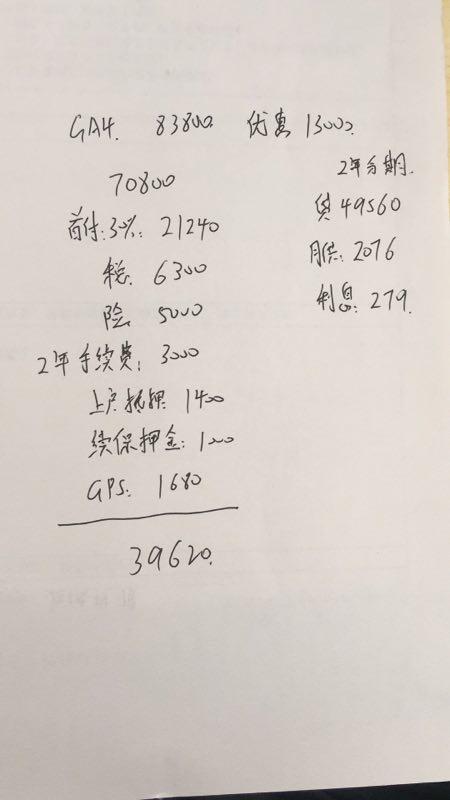 GA4. 83800 优惠 13000.
70800
首付:30%: 21240
税. 6300
险 5000
2年手续费: 3000
上户抵押 1400
续保押金: 1000
GPS: 1680
39620.
2年分期.
贷 49560
月供: 2076
利息: 279.